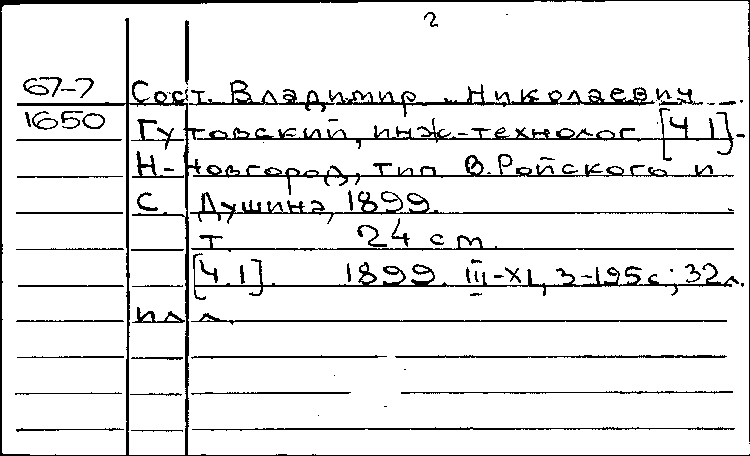 2
67-7 Сост. Владимир Николаевич
1650 Гутовский, инж.-технолог. [Ч.1].-
Н.-Новгород, тип. В.Ройского и
С. Душина, 1899.
т. 24 см.
[Ч.1]. 1899. III-XI, 3-195 с.; 32 л.
илл.